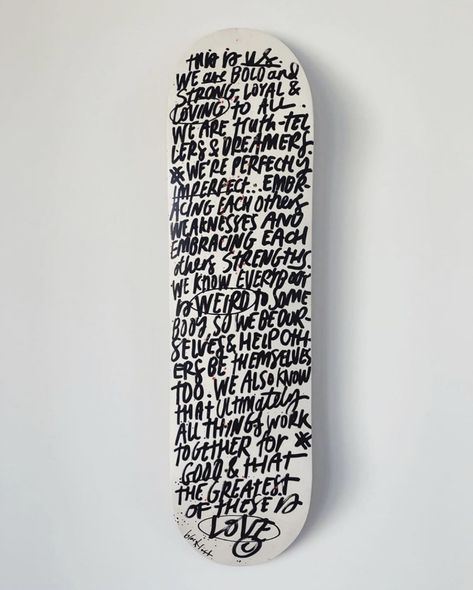 this is us
WE are BOLD and
STRONG, LOYAL &
LOVING TO ALL.
WE ARE truth-tel
LERS & DREAMERS.
WE'RE PERFECTLY
IMPERFECT... EMBR-
ACING EACH others
WEAKNESSES AND
EMBRACING EACH
others STRENGTHS.
WE KNOW EVERYBODY
is WEIRD TO SOME
BODY, SO WE BE OUR-
SELVES & HELP OTH-
ERS BE THEMSELVES
TOO. WE ALSO KNOW
that Ultimately
ALL THINGS WORK
TOGETHER for
GOOD & THAT
THE GREATEST
OF THESE is
LOVE